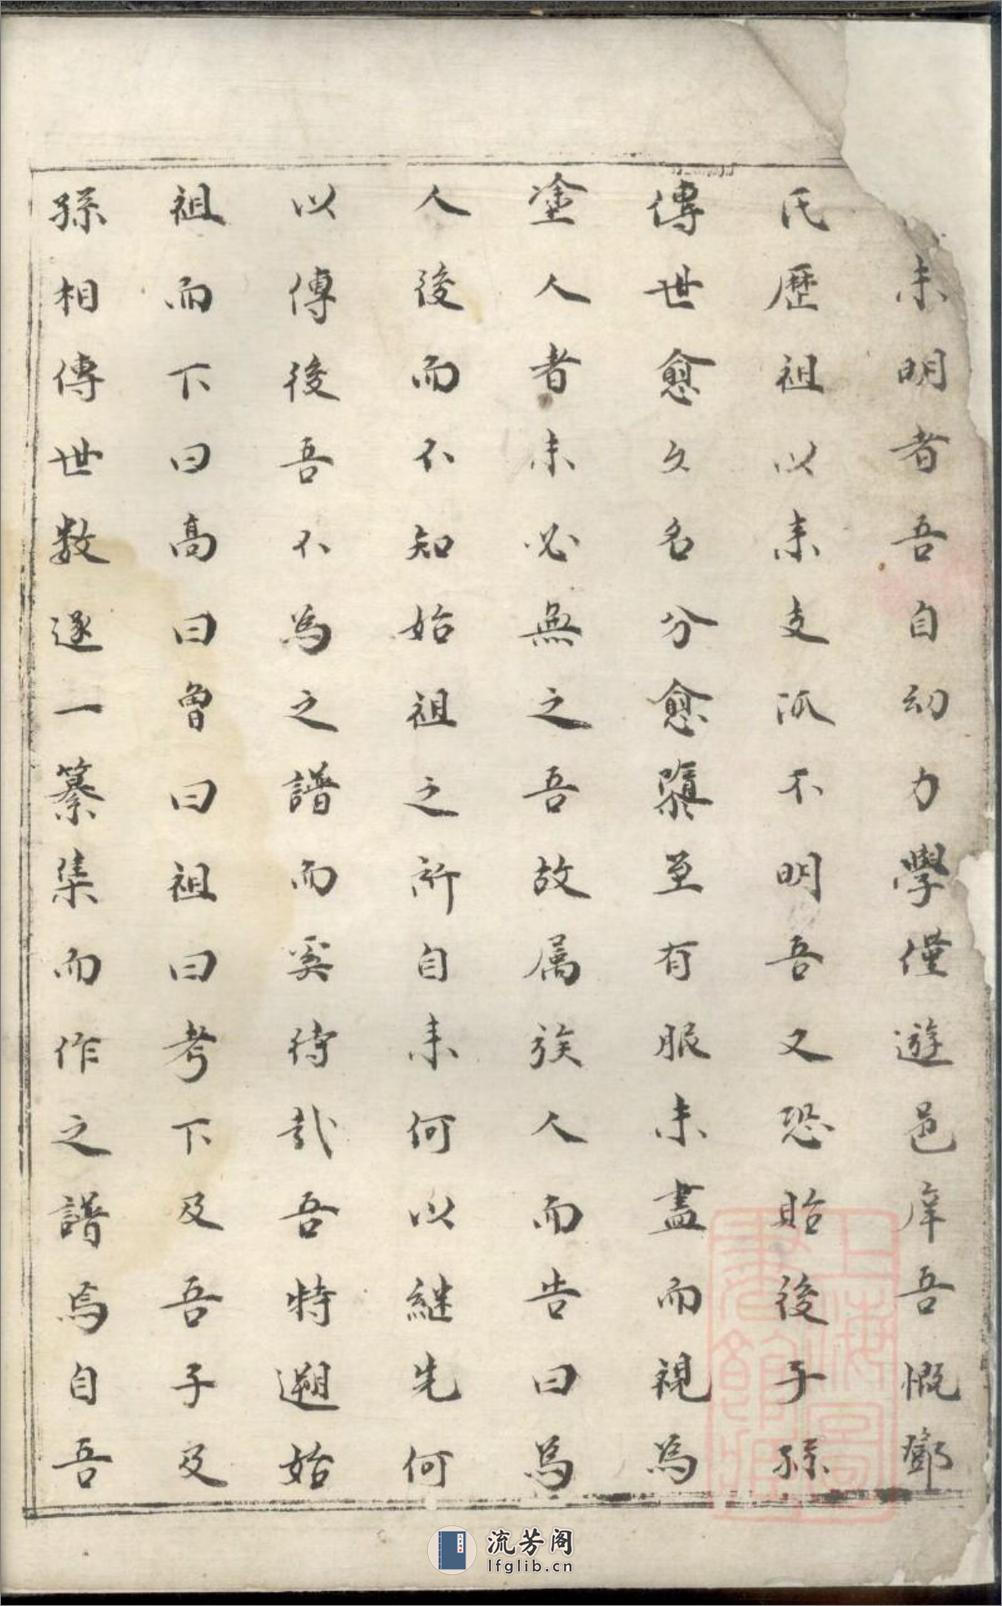 未明者吾自幼力學僅遊邑庠吾慨鄧
氏歷祖以来支派不明吾又恐貽後子孫
傳世愈久名分愈隳至有服未盡而視為
塗人者未必無之吾故属族人而告曰為
人後而不知始祖之所自来何以継先何
以傳後吾不為之譜而奚待哉吾特遡始
祖而下曰高曰曾曰祖曰考下及吾子及
孫相傳世数逐一纂集而作之譜焉自吾
上海圖書館藏
流芳阁
lfglib.cn